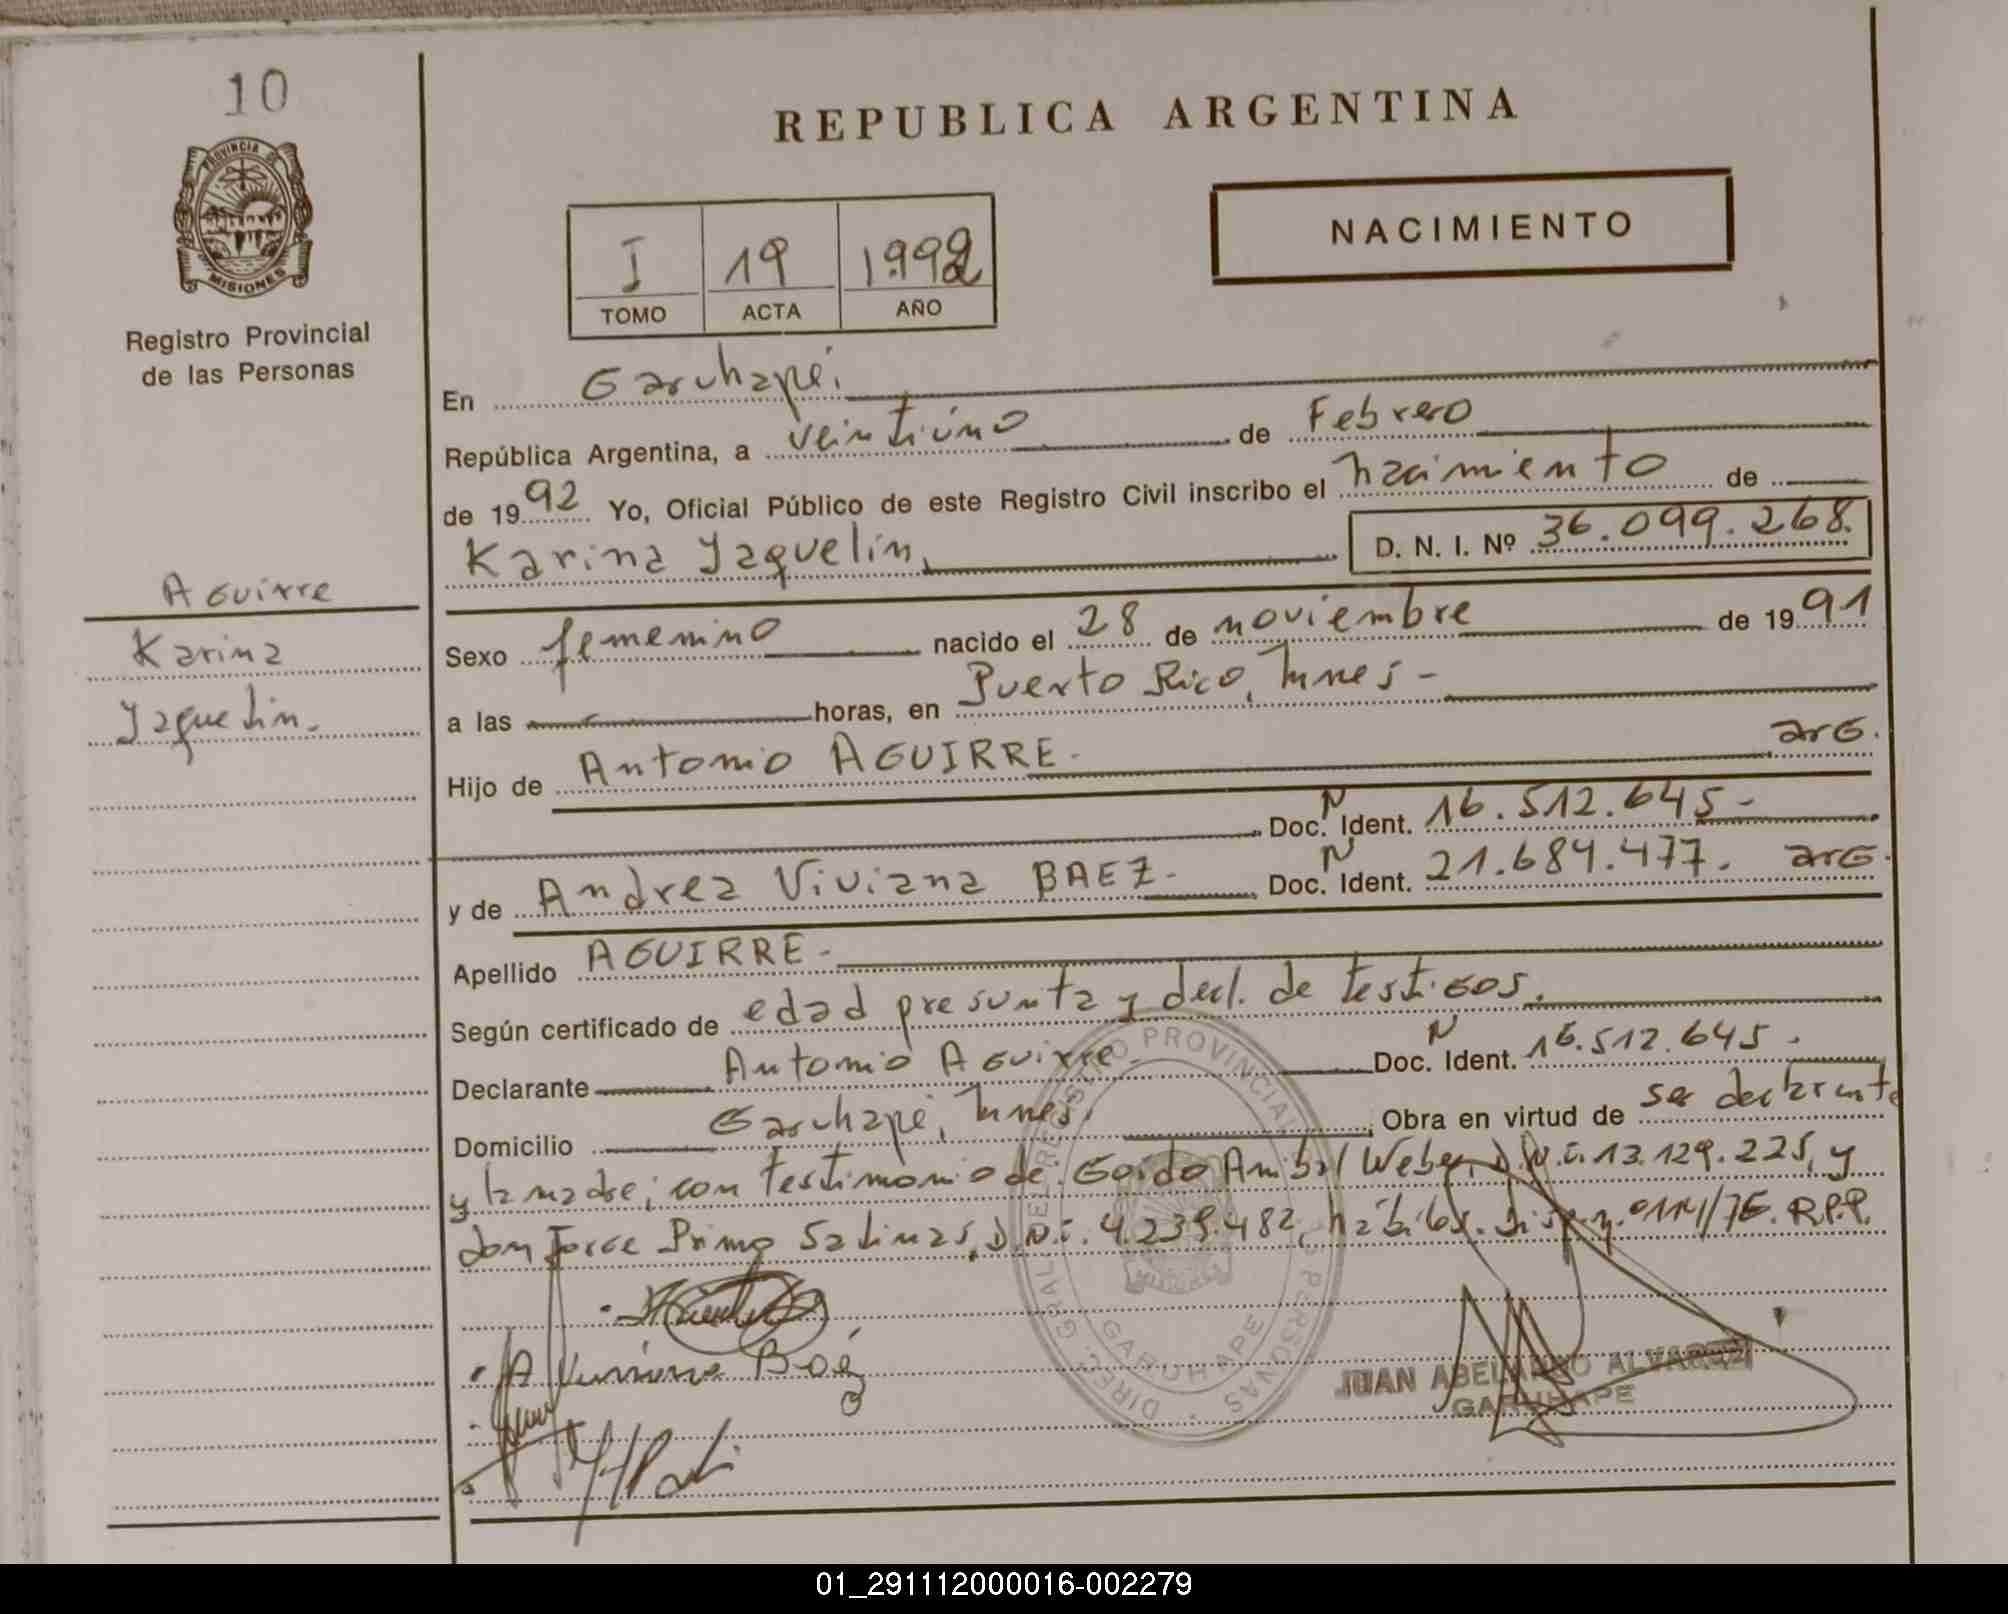 10
REPUBLICA ARGENTINA
PROVINCIA DE
MISIONES
NACIMIENTO
I 19 1992
TOMO ACTA AÑO
Registro Provincial
de las Personas
En Garuhapé.
República Argentina, a veintiúno de Febrero
de 1992 Yo, Oficial Público de este Registro Civil inscribo el nacimiento de
Karina Yaquelin, D. N. I. Nº 36.099.268.
Aguirre
Karina
Yaquelin.
Sexo femenino nacido el 28 de noviembre de 1991
a las horas, en Puerto Rico, Mnes-
Hijo de Antonio AGUIRRE. arg.
Doc. N Ident. 16.512.645-
y de Andrea Viviana BAEZ- Doc. N Ident. 21.684.477. arg.
Apellido AGUIRRE-
Según certificado de edad presunta y decl. de testigos.
Declarante Antonio Aguirre Doc. N Ident. 16.512.645-
Domicilio Garuhapé, Mnes. Obra en virtud de ser declarante
y la madre; con testimonio de Guido Anibal Weber, D.N.i. 13.129.225, y
don Jorge Primo Salinas, D.N.i. 4.239.482, hábiles. R.P.P.
A Viviana Baéz
DIREC. GRAL. DE REGISTRO PROVINCIAL DE PERSONAS
GARUHAPE
JUAN ABELARDO ALVAREZ
GARUHAPE
01_291112000016-002279